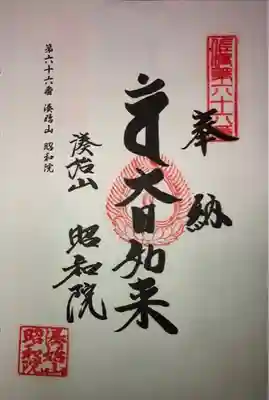 佐賀第六十六番
奉納
大日如来
湊治山
昭和院
第六十六番 湊治山 昭和院
湊治山
昭和院